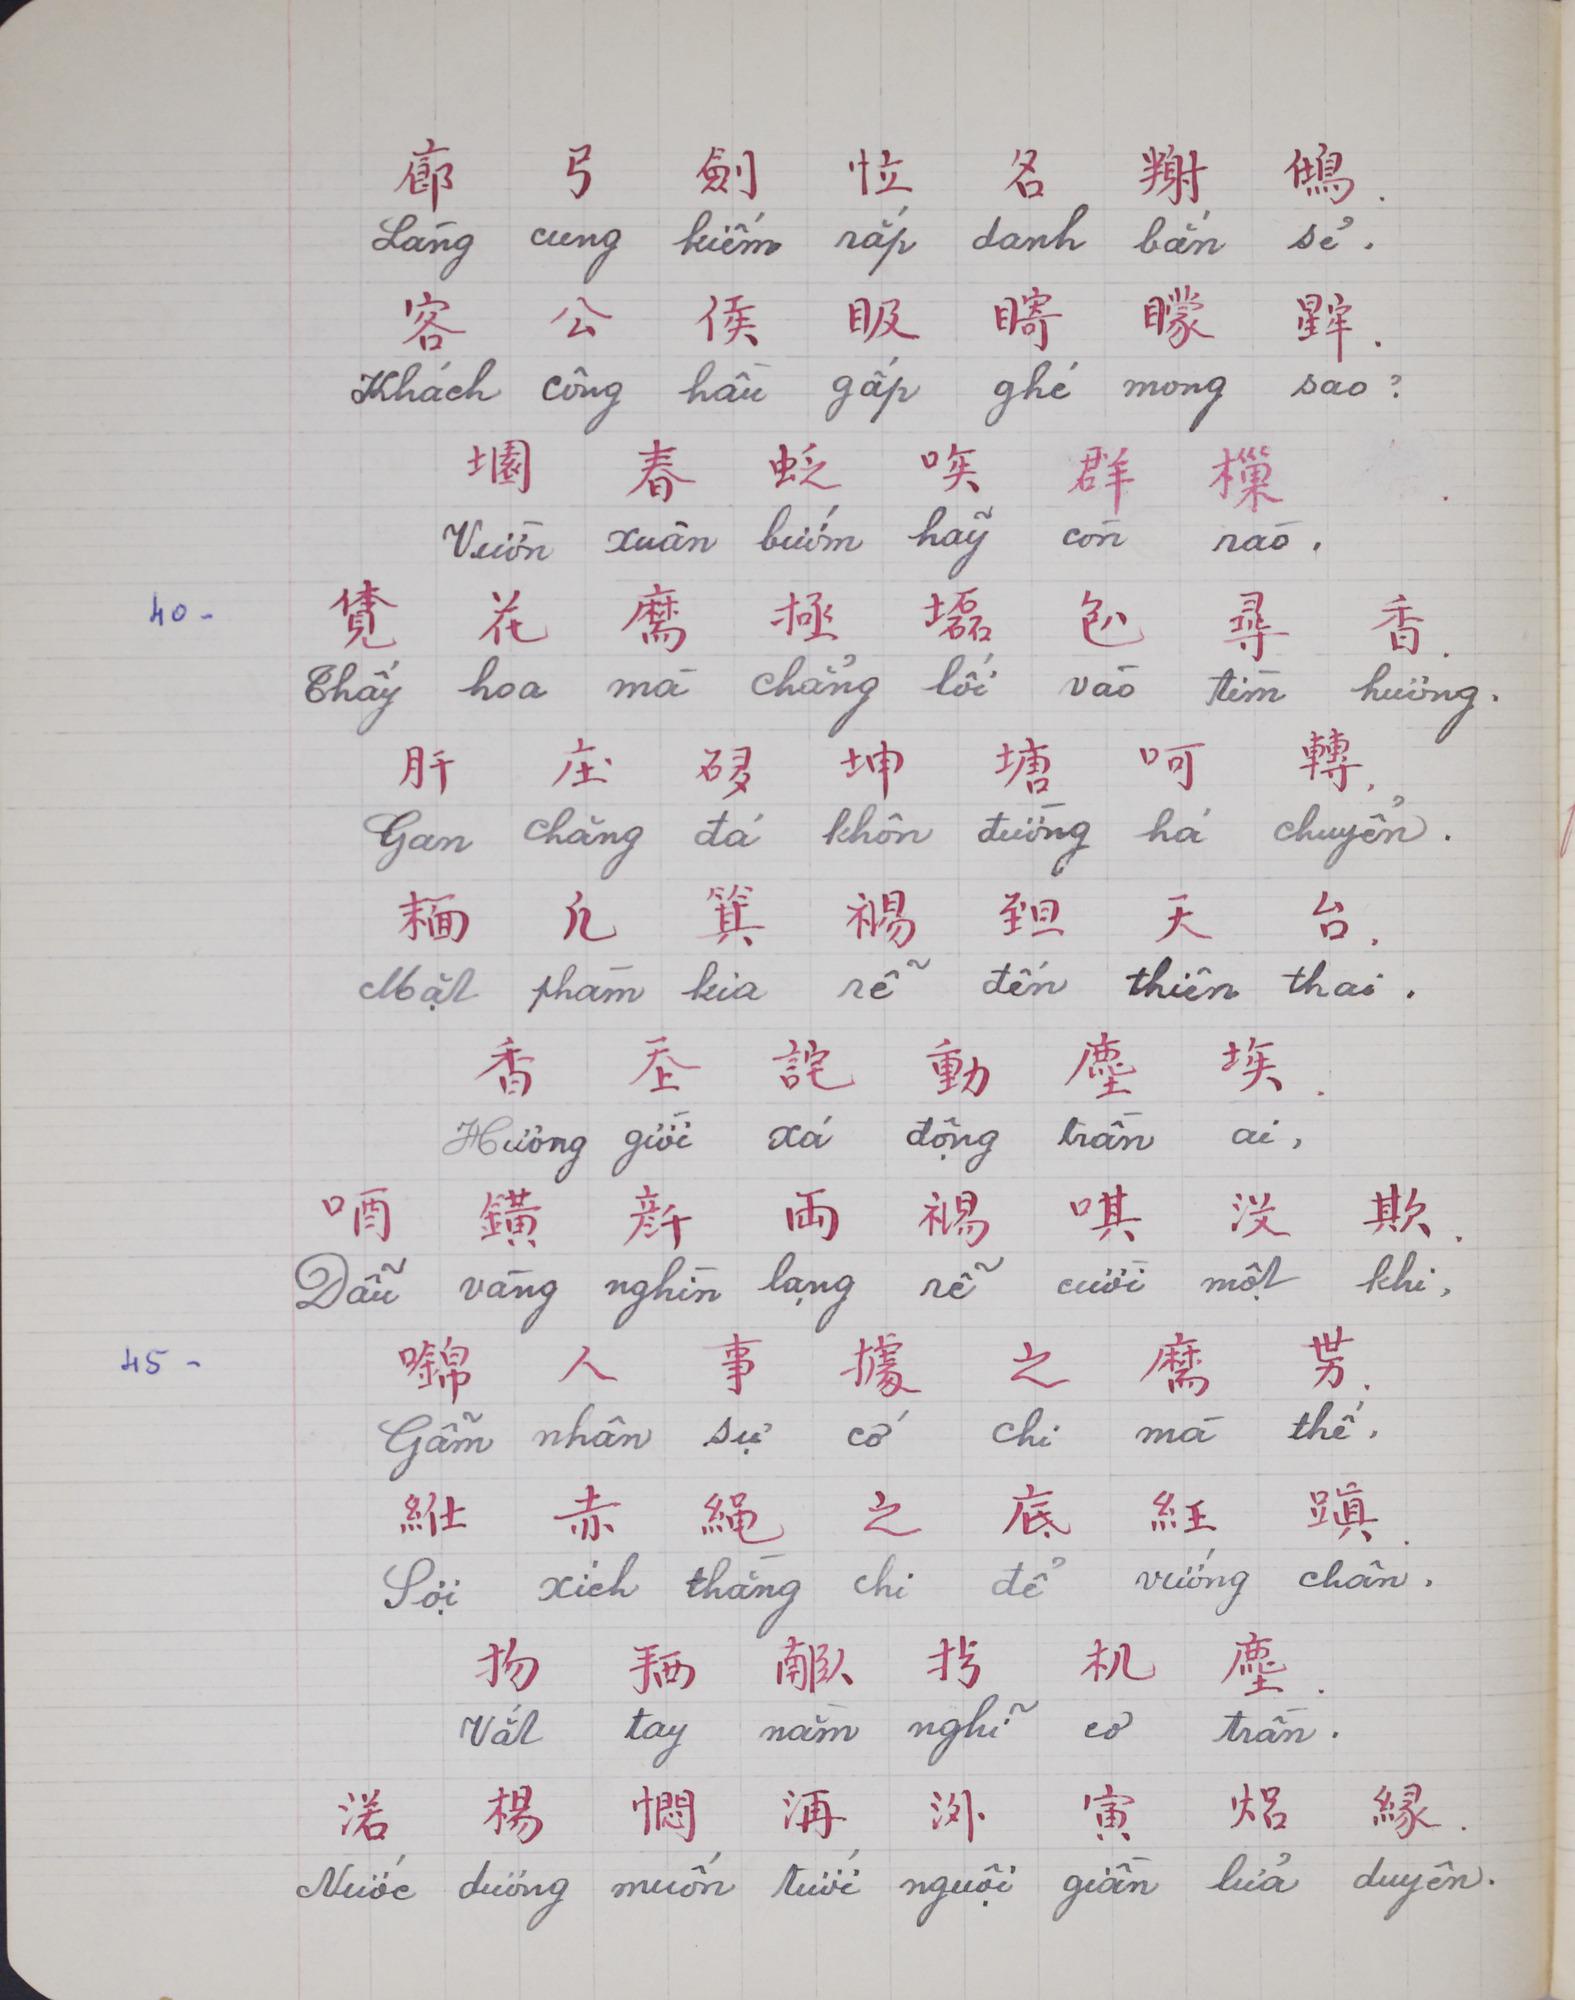 廊 弓 劍 㤚 名 𢏑 鴆.
Làng cung kiếm rắp danh bắn sẻ.
客 公 侯 眅 𥊘 矇 𣋀.
Khách công hầu gấp ghé mong sao?
園 春 𧊉 唉 群 樔.
Vườn xuân bướm hãy còn rào.
40- 覽 花 麽 拯 𡑓 𠓨 尋 香.
Thấy hoa mà chẳng lối vào tìm hương.
肝 庄 𥒥 坤 塘 呵 轉.
Gan chăng đá khôn đường há chuyển.
𩈘 凡 箕 裼 𦤾 天 台.
Mặt phàm kia rễ đến thiên thai.
香 𡗶 詫 動 塵 埃.
Hương giời xá động trần ai,
唒 鐄 𠦳 両 裼 唭 没 欺.
Dẫu vàng nghìn lạng rễ cười một khi,
45- 㖫 人 事 據 之 麽 𠁀.
Gẫm nhân sự cớ chi mà thế,
𥾘 赤 繩 之 底 紝 蹎.
Sợi xích thằng chi để vướng chân.
抝 𢬣 𦣰 𢪮 机 塵.
Vắt tay nằm nghĩ cơ trần.
渃 楊 憫 洅 𣵲 寅 焒 緣.
Nước dương muốn tưới nguội giần lửa duyên.